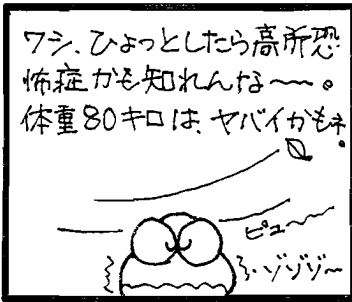 ワシ、ひょっとしたら高所恐
怖症かも知れんな～～。
体重80キロは、ヤバイかもネ。
ピュ～～
ゾゾゾ～